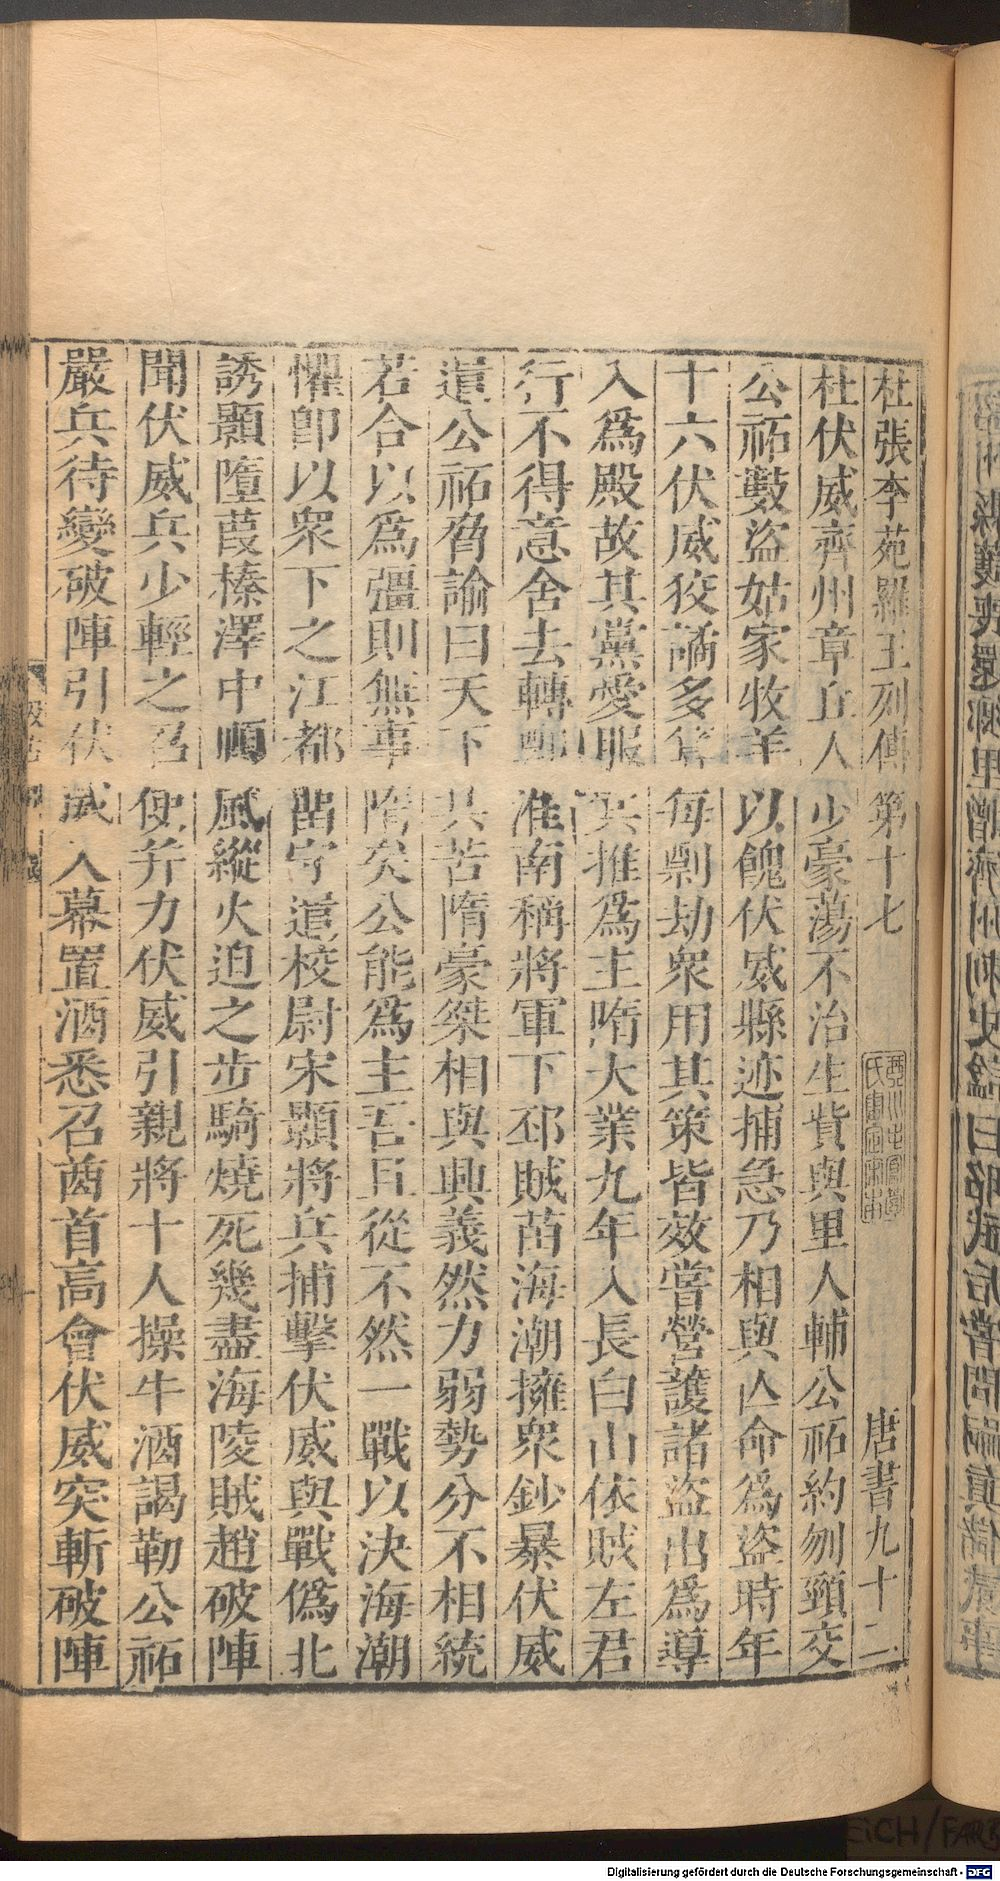 杜張李苑羅王列傳第十七 唐書九十二
杜伏威齊州章丘人少豪蕩不治生貲與里人輔公祏約刎頸交
公祏數盜姑家牧羊以餽伏威縣迹捕急乃相與亾命爲盜時年
十六伏威狡譎多算每剽劫衆用其策皆效嘗營護諸盜出爲導
入爲殿故其黨愛服共推爲主隋大業九年入長白山依賊左君
行不得意舍去轉掠淮南稱將軍下邳賊苗海潮擁衆鈔暴伏威
遣公祏脅諭曰天下共苦隋豪桀相與興義然力弱勢分不相統
若合以爲彊則無事隋矣公能爲主吾且從不然一戰以決海潮
懼卽以衆下之江都畱守遣校尉宋顥將兵捕擊伏威與戰僞北
誘顥墮葭榛澤中順風縱火迫之步騎燒死幾盡海陵賊趙破陣
聞伏威兵少輕之召使并力伏威引親將十人操牛酒謁勒公祏
嚴兵待變破陣引伏威入幕置酒悉召酋首高會伏威突斬破陣
Digitalisierung gefördert durch die Deutsche Forschungsgemeinschaft - DFG